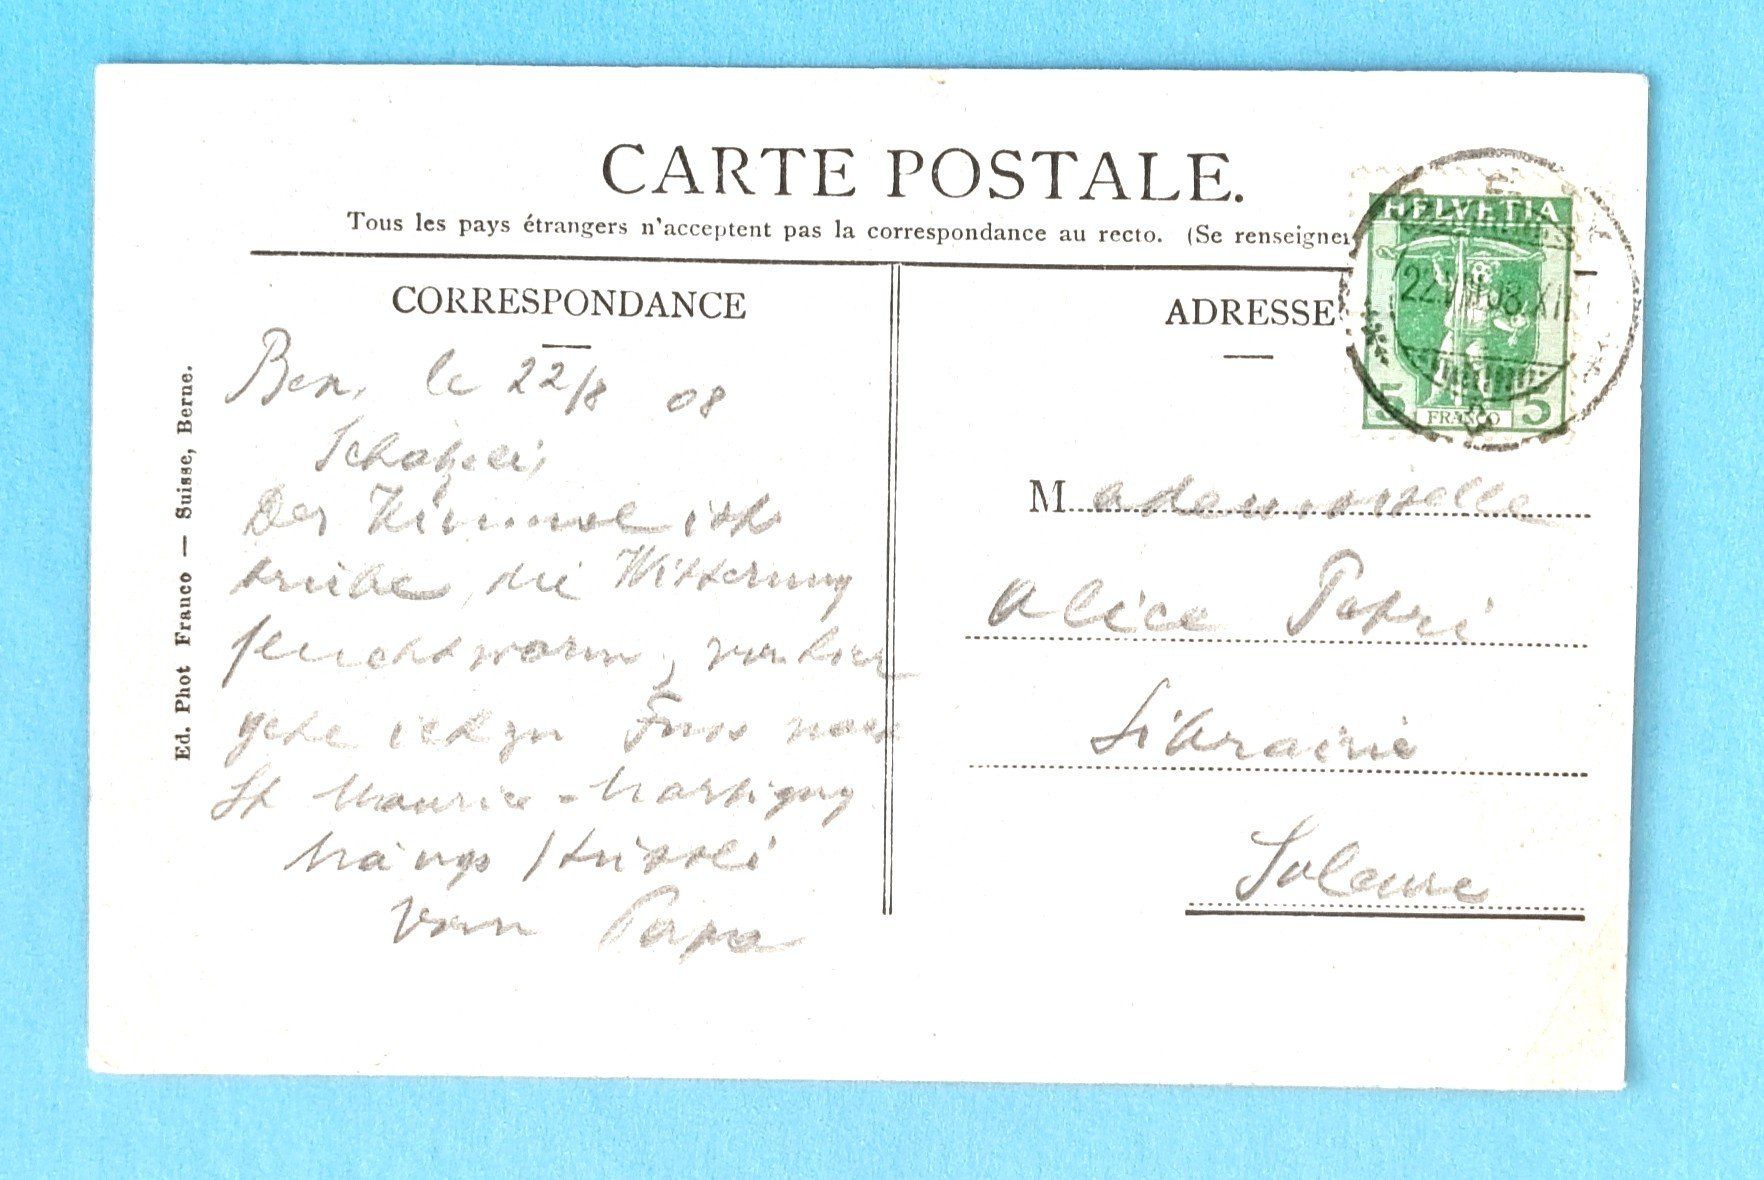 CARTE POSTALE.
Tous les pays étrangers n'acceptent pas la correspondance au recto. (Se renseigner
CORRESPONDANCE
Bex, le 22/8 08
Schatzeli,
Der Himmel ist
trübe, die Witterung
feuchtwarm, von hier
gehe ich zu Fuss nach
St Maurice - Martigny
Küssli
vom Papa
Ed. Phot Franco — Suisse, Berne.
ADRESSE
HELVETIA
22.VIII.08.XII
5 FRANCO 5
Mademoiselle
Alice Petri
Librairie
Soleure